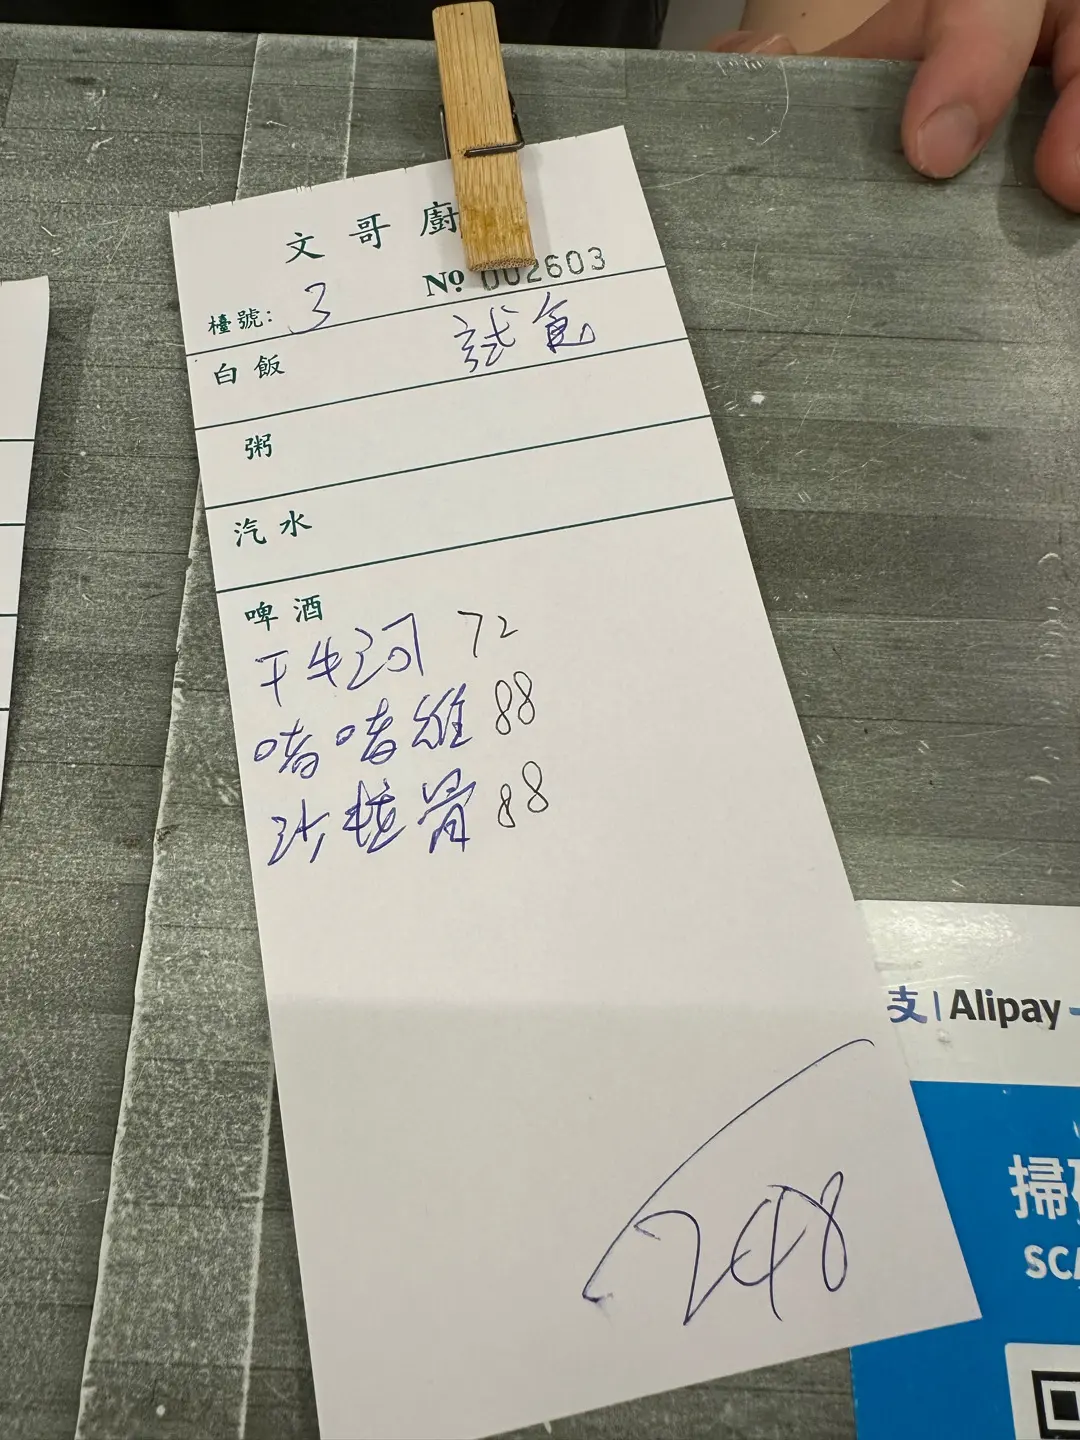 文哥廚
No 002603
檯號: 3
試食
白飯
粥
汽水
啤酒
干牛河 72
啫啫雞 88
沙 骨 88
248
支 | Alipay
掃
SCA